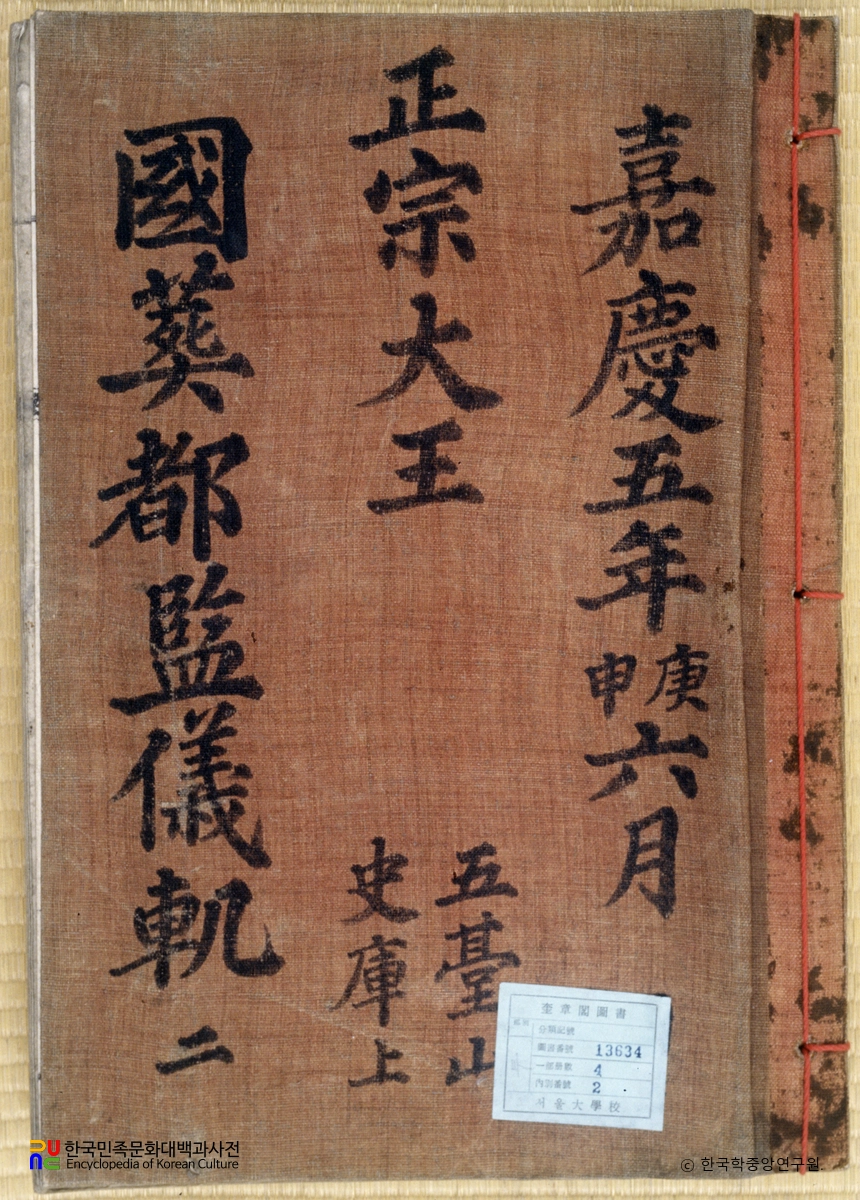 嘉慶五年庚申六月
正宗大王
五臺山
史庫上
國葬都監儀軌 二
奎章閣圖書
圖書番號 13634
一部冊數 4
內別番號 2
서울大學校
한국민족문화대백과사전
Encyclopedia of Korean Culture
© 한국학중앙연구원